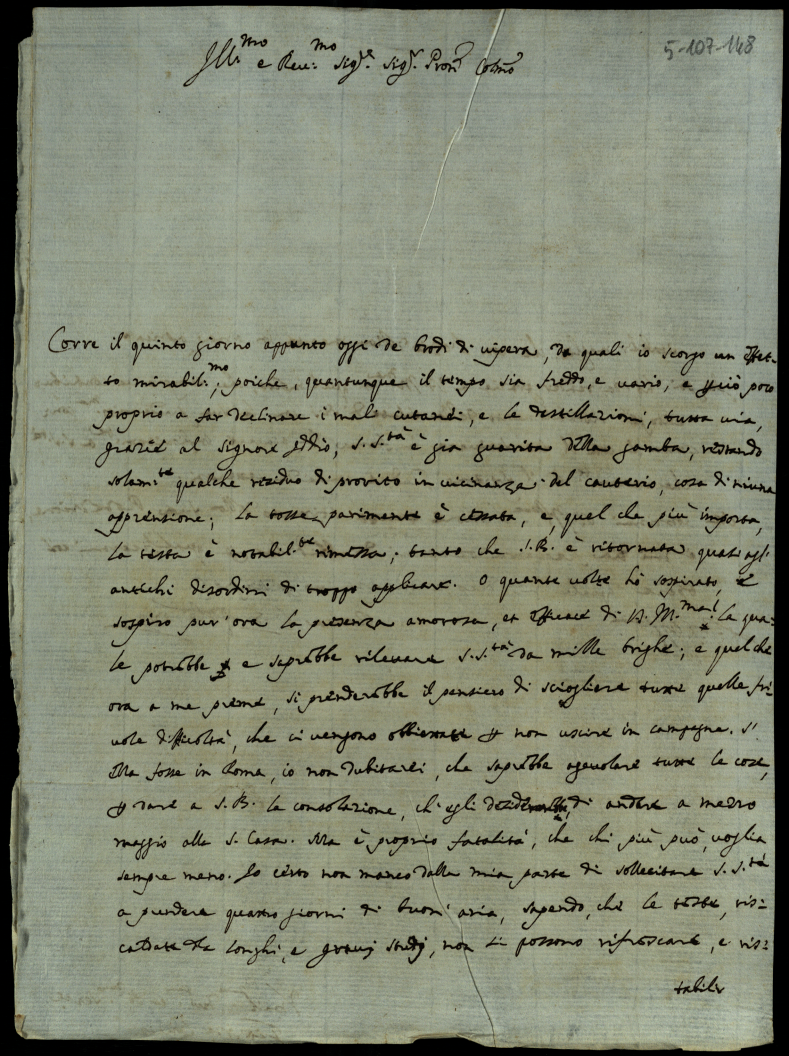 5-107-148
Ill:mo e Reu:mo Sig.re Sig.r Pron Colmo
Corre il quinto giorno appunto oggi de brodi di uipera, da quali io scorgo un effet-
to mirabil:mo, poiche, quantunque il tempo sia freddo, e uario, e p ciò poco
proprio a far declinare i mali cutanei, e le destillazioni, tutta uia,
grazie al Signore Iddio, S. S.tà è già guarita della gamba, restando
solam:te qualche residuo di prorito in uicinanza del cauterio, cosa di niuna
apprensione; la tosse parimente è cessata, e, quel che più importa,
la testa è notabil:te rimessa; tanto che S.B. è ritornata quasi agl'
antichi disordini di troppo applicare. O quante uolte hò sospirato, e
sospiro pur'ora la presenza amorosa, et efficace di V.S. Ill.ma, la qua-
le potrebbe e saprebbe rileuare S.S.tà da mille brighe; e quel che
ora a me preme, si prenderebbe il pensiero di sciogliere tutte quelle fri-
uole difficoltà, che ci uengono obbiettate p non uscire in campagna. S'
Ella fosse in Roma, io non dubitarei, che saprebbe ageuolare tutte le cose,
p dare a S.B. la consolazione, ch'egli di andare a mezzo
maggio alla S. Casa. Ma è proprio fatalità, che chi più può, uoglia
sempre meno. Io certo non manco dalla mia parte di sollecitare S.S.tà
a prendere quattro giorni di buon'aria, sapendo, che le teste, ris-
caldate da longhi, e graui studj, non si possono rifrescare, e ris-
tabilir